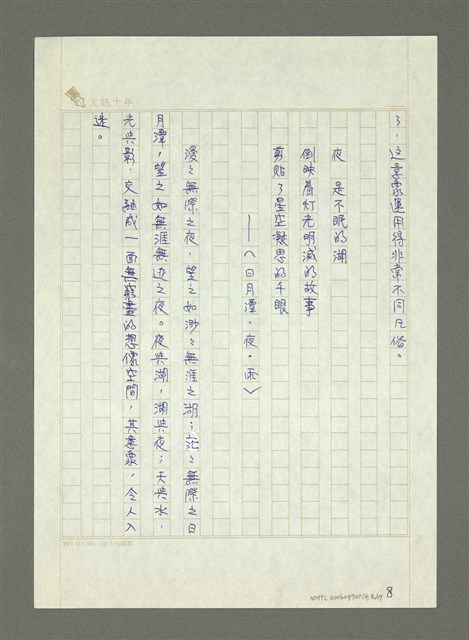 文訊十年
了，這意象運用得非常不同凡俗。
夜　是不眠的湖
倒映着灯光明滅的故事
剪貼了星空凝思的千眼
——〈日月潭・夜・雨〉
漫々無際之夜，望之如渺々無涯之湖；茫々無際之日
月潭，望之如無涯無迹之夜。夜與湖，湖與夜；天與水，
光與影，交融成一面無窮盡的想像空間，其意象，令人入
迷。
8